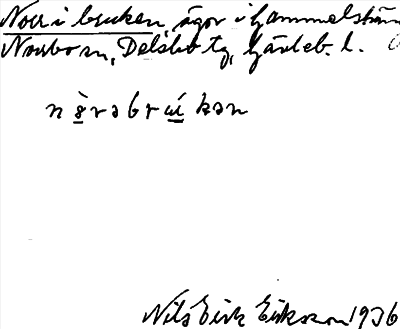 Norr i bruken ägor i Gammelsträn
Norrbo sn, Delsbo tg, Gävleb. l.
nø̀rəbrúkən
Nils Eirk Eriksson 1936